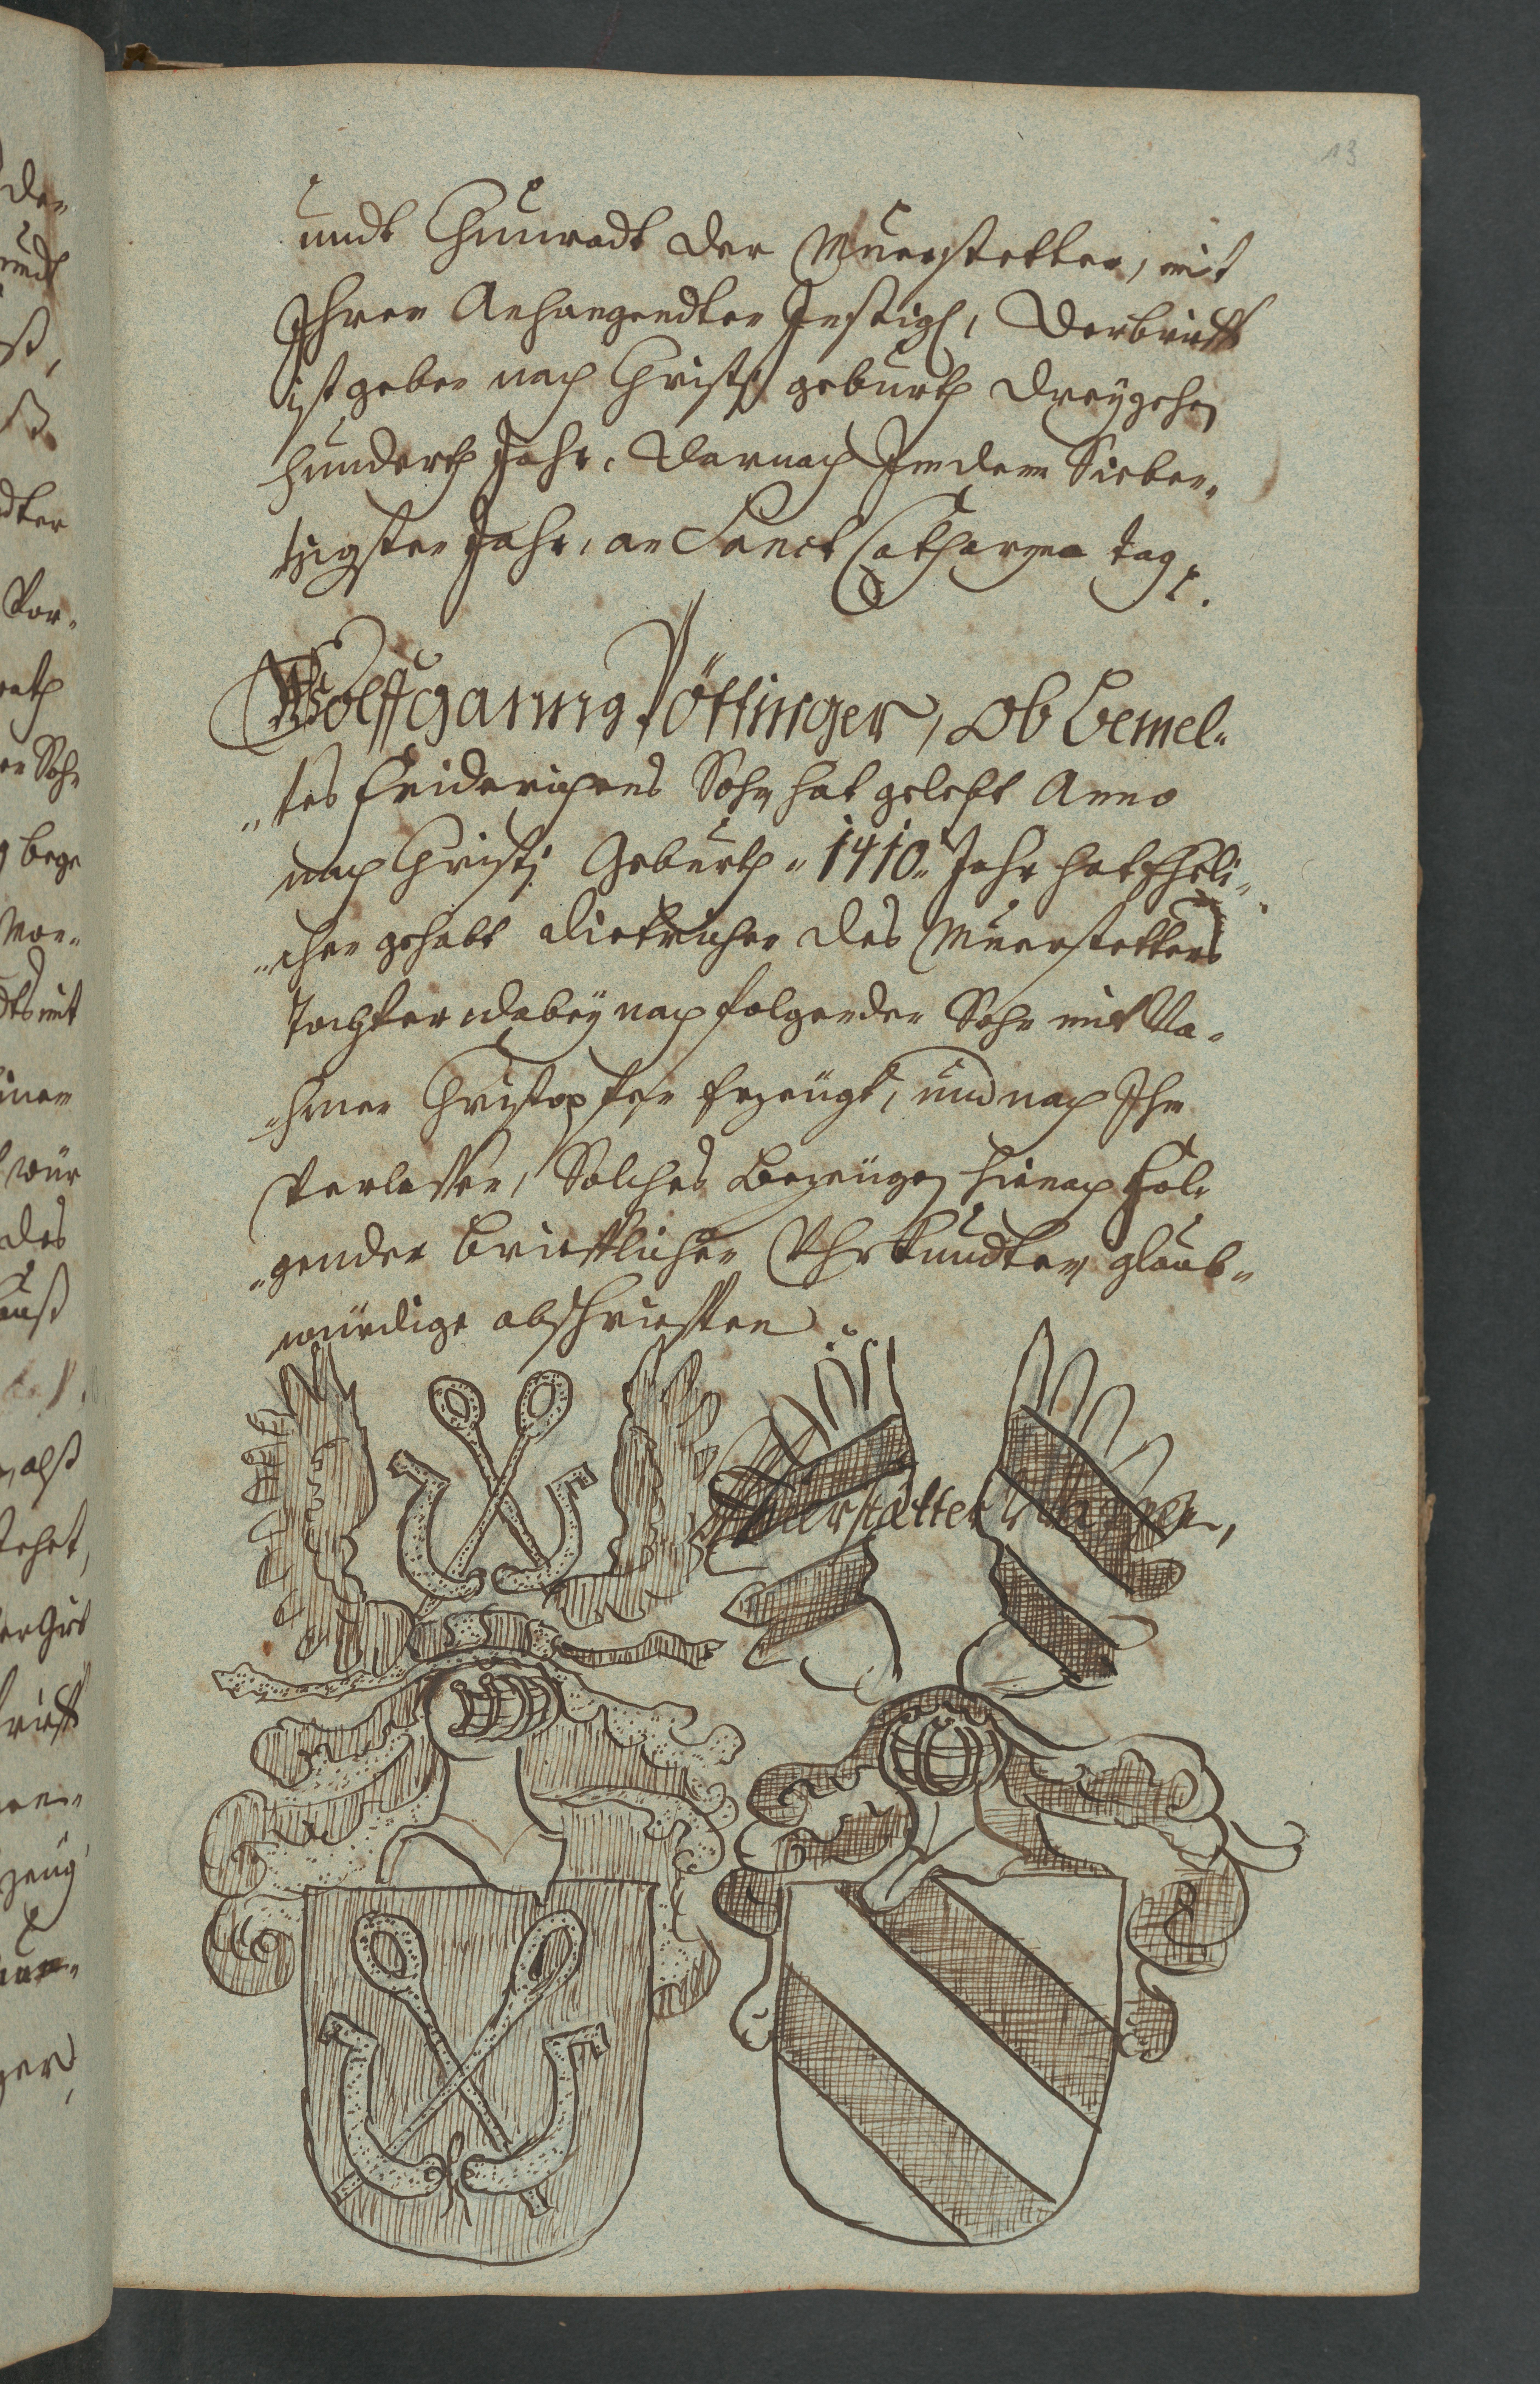 13
undt Chunradt der Muerstetter, mit
Ihren Anhangendten Instigl, Der brieff
ist geben nach Christi geburth dreyzehen
hundterth Jahr, darnach Indem Sieben„
tzigsten Jahr, an Sanct Catharyna tag.
Wolffganng Pöttinger, Ob bemel„
„tes Friderichens Sohn hat gelebt Anno
nach Christj Geburth „1410„ Jahr hat Eheli„
„chen gehabt Dietrichen des Muerstetters
Tochter dabey nachfolgenden Sohn mit Na„
„hmen Christophen Erzeugt, und nach Ihm
Verlassen, Solches bezeugen hienach Fol„
„genden brieflichen Vhrkundten glaub„
würdige abschrifften
Muerstätter Wappen,